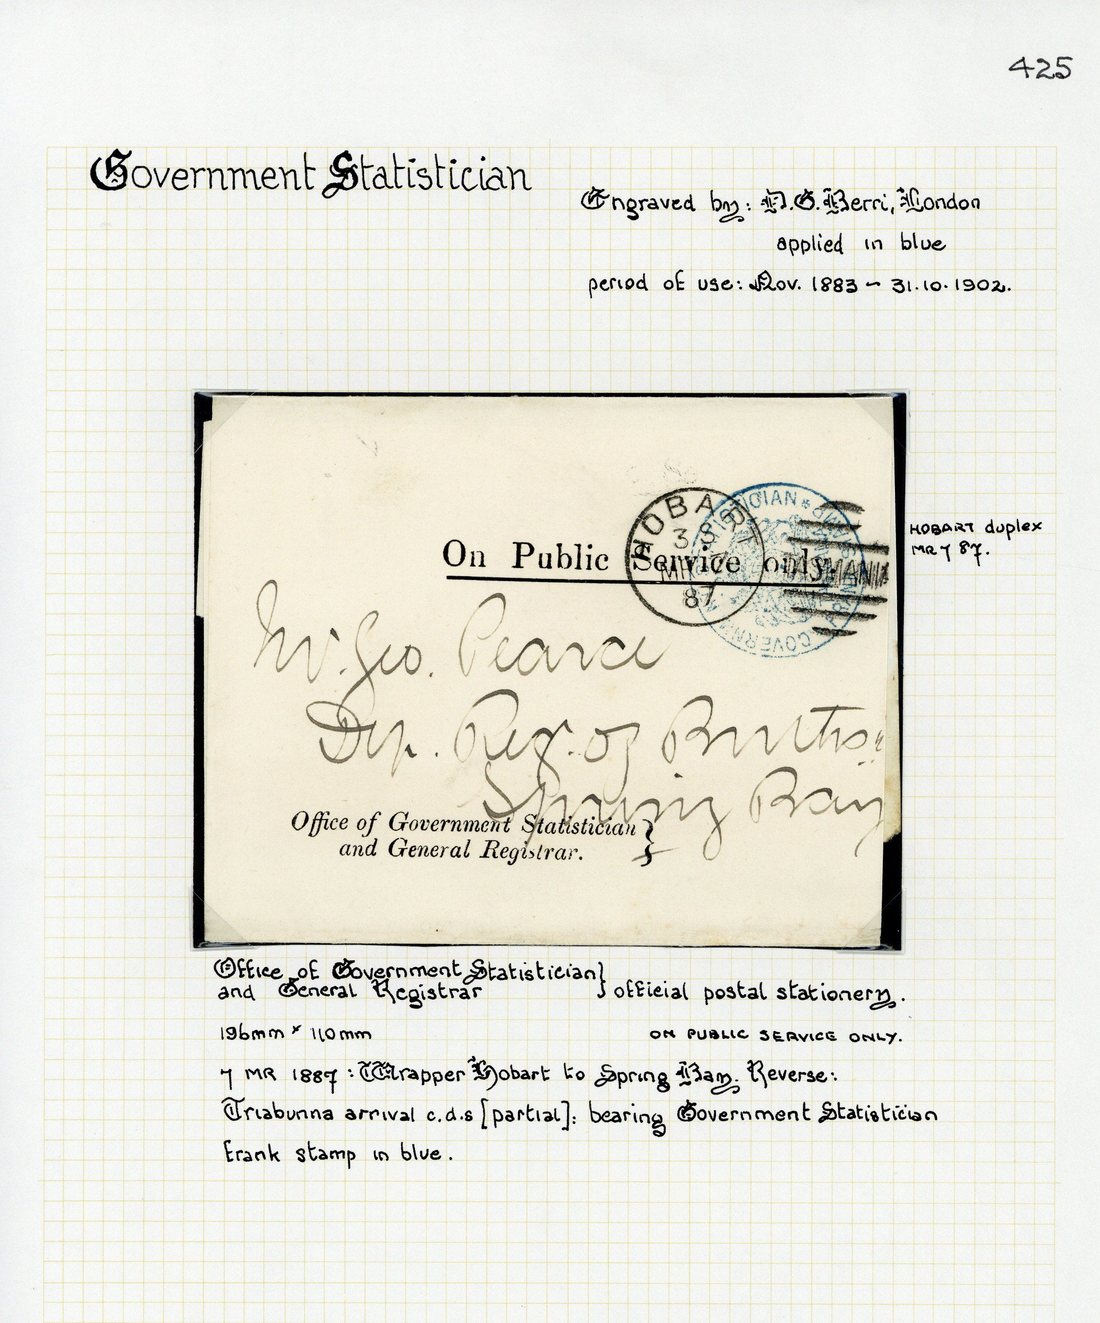 425
Government Statistician
Engraved by: D.G. Berri, London
applied in blue
period of use: Nov. 1883 - 31.10.1902.
HOBART
3 S
MR 7
87
TASMANIA
GOVERNMENT STATISTICIAN * FRANK STAMP
On Public Service only.
HOBART duplex
MR 7 87.
Mr. Geo. Pearce
Dep. Reg. of Births &c
Spring Bay
Office of Government Statistician }
and General Registrar.
Office of Government Statistician }
and General Registrar } official postal stationery.
196mm x 110mm ON PUBLIC SERVICE ONLY.
7 MR 1887 : Wrapper Hobart to Spring Bay. Reverse:
Triabunna arrival c.d.s [partial]: bearing Government Statistician
frank stamp in blue.